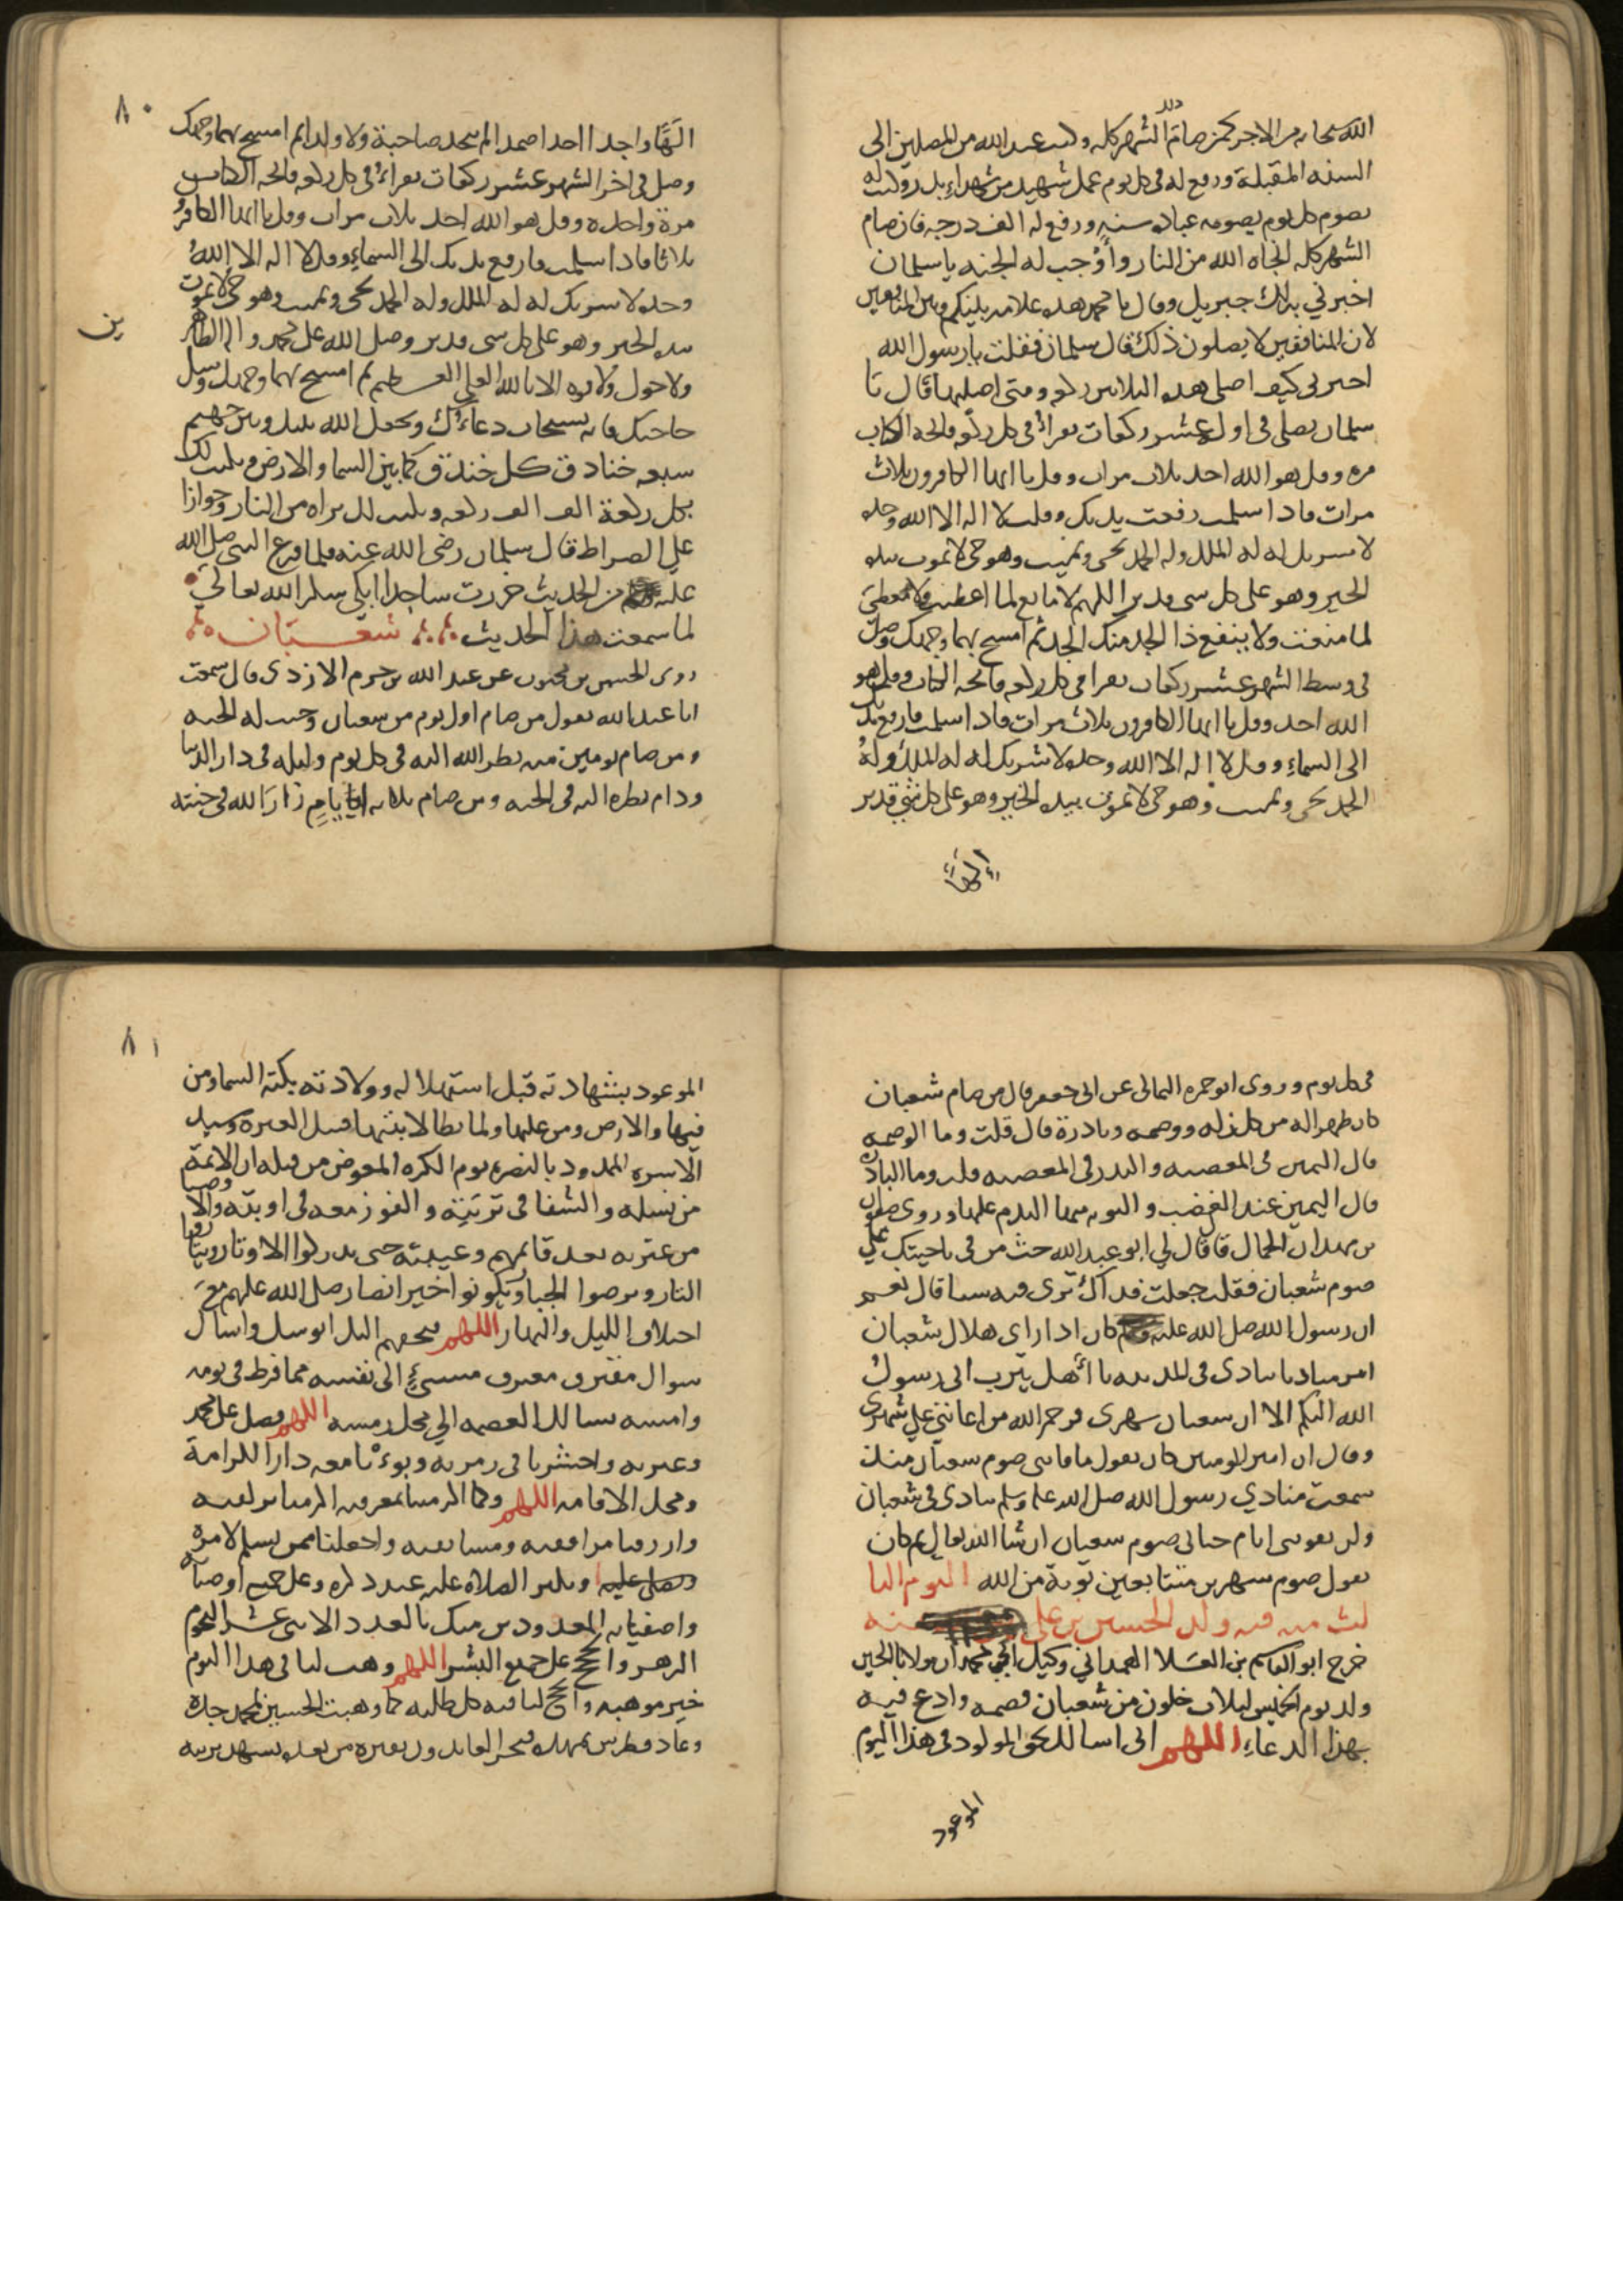 الله سبحانه من الاجر كمن صام ذلك الشهر كله وكتب عند الله من المصلين الى
السنه المقبلة ورفع له فى كل يوم عمل شهيد من شهداء بدر وكتب له
بصوم كل يوم يصومه عبادة سنةٍ ورفع له الف درجه فان صام
الشهر كله انجاه الله من النار وأوجب له الجنه يا سلمان
اخبرني بذلك جبريل وقال يا محمد هذه علامه بينكم وبين المنافقين
لان المنافقين لا يصلون ذلك قال سلمان فقلت يا رسول الله
اخبرنى كيف اصلى هذه الثلاثين ركعه ومتى اصليها قال يا
سلمان تصلى فى اوله عشر ركعات تقراء فى كل ركعه فاتحه الكتاب
مره وقل هو الله احد ثلاث مرات وقل يا ايها الكافرون ثلاث
مرات فاذا سلمت رفعت يديك وقلت لا اله الا الله وحده
لا شريك له له الملك وله الحمد يحيى ويميت وهو حى لا يموت بيده
الخير وهو على كل شى قدير اللهم لا مانع لما اعطيت ولا معطى
لما منعت ولا ينفع ذا الجد منك الجد ثم امسح بهما وجهك وصل
فى وسط الشهر عشر ركعات تقرا فى كل ركعه فاتحه الكتاب وقل هو
الله احد وقل يا ايها الكافرون ثلاث مرات فاذا سلمت فارفع يديك
الى السماءِ وقل لا اله الا الله وحده لا شريك له له الملك وله
الحمد يحيى ويميت وهو حى لا يموت بيده الخير وهو على كل شئ قدير
الهًا
٨٠
الهًا واحدا احدا صمدا لم يتخذ صاحبة ولا ولدا ثم امسح بهما وجهك
وصل فى اخر الشهر عشر ركعات تقراء فى كل ركعه فاتحه الكتاب
مرة واحده وقل هو الله احد ثلاث مرات وقل يا ايها الكافرو
ين
ثلاثا فاذا سلمت فارفع يديك الى السماءِ وقل لا اله الا الله
وحده لا شريك له له الملك وله الحمد يحيى ويميت وهو حى لا يموت
بيده الخير وهو على كل شى قدير وصل الله على محمد واله الطاهر
ولا حول ولا قوه الا بالله العلى العظيم ثم امسح بهما وجهك وسل
حاجتك فانه يستجاب دعاءك ويجعل الله بينك وبين جهنم
سبعه خنادق كل خندق كما بين السما والارض ويكتب لك
بكل ركعة الف الف ركعه ويكتب لك براه من النار وجوازا
على الصراط قال سلمان رضى الله عنه فلما فرغ النبى صلى الله
عليه من الحديث خررت ساجدا ابكى شكرا لله تعالى
لما سمعت هذا الحديث شعبان
روى الحسن بن محبوب عن عبد الله بن حزم الازدى قال سمعت
ابا عبد الله يقول من صام اول يوم من شعبان وجبت له الجنه
ومن صام يومين منه نظر الله اليه فى كل يوم وليله فى دار الدنيا
ودام نظره اليه فى الجنه ومن صام ثلاثه ايام زار الله فى جنته
فى كل يوم وروى ابو حمزه الثمالى عن ابى جعفر قال من صام شعبان
كان طهرا له من كل زله ووصمه وبادرة قال قلت وما الوصمه
قال اليمين فى المعصيه والنذر فى المعصيه قلت وما البادره
قال اليمين عند الغضب والتوبه منها الندم عليها وروى صفوان
بن مهران الجمال قال قال لي ابو عبد الله حث من فى ناحيتك على
صوم شعبان فقلت جعلت فداك ترى فيه شيا قال نعم
ان رسول الله صلى الله عليه كان اذا راى هلال شعبان
امر مناديا ينادى فى المدينه يا أهل يثرب انى رسول
الله اليكم الا ان شعبان شهرى فرحم الله من اعاننى على شهرى
وقال ان امير المومنين كان يقول ما فاتنى صوم شعبان منذ
سمعت منادي رسول الله صلى الله عليه وسلم ينادى فى شعبان
ولن يفوتنى ايام حياتى صوم شعبان ان شا الله تعالى ثم كان
يقول صوم شهرين متتابعين توبة من الله اليوم الثا
لث منه فيه ولد الحسين بن على
خرج ابو القاسم بن العلا الهمداني وكيل ابى محمد ان مولانا الحسين
ولد يوم الخميس لثلاث خلون من شعبان فصمه وادع فيه
بهذا الدعاءِ اللهم انى اسالك بحق المولود فى هذا اليوم
الموعود
٨١
الموعود بشهادته قبل استهلاله وولادته بكته السما ومن
فيها والارض ومن عليها ولما يطا لابتيها قتيل العبرة وسيد
الاسره الممدود بالنصره يوم الكره المعوض من قتله ان الائمة
من نسله والشفا فى تربته والفوز معه فى اوبته والاوصيا
من عترته بعد قائمهم وغيبته حتى يدركوا الاوتار ويثاروا
الثار ويرضوا الجبار ويكونوا خير انصار صلى الله عليهم مع
اختلاف الليل والنهار اللهم فبحقهم اليك اتوسل واسال
سوال مقترف معترف مسىءٍ الى نفسه مما فرط فى يومه
وامسه يسالك العصمه الى محل رمسه اللهم فصل على محمد
وعترته واحشرنا فى زمرته وبوءنا معه دار الكرامة
ومحل الاقامه اللهم وكما اكرمتنا بمعرفته اكرمنا بزلفته
وارزقنا مرافقته ومسابقته واجعلنا ممن يسلم لامره
ويكثر الصلاة عليه عند ذكره وعلى جميع اوصيائه
واصفيائه المعدودين منك بالعدد الاثنى عشر النجوم
الزهر والحجج على جميع البشر اللهم وهب لنا فى هذا اليوم
خير موهبه وانجح لنا فيه كل طلبه كما وهبت الحسين لمحمد جده
وعاذ فطرس بمهده فنحن عائذون بقبره من بعده نشهد تربته